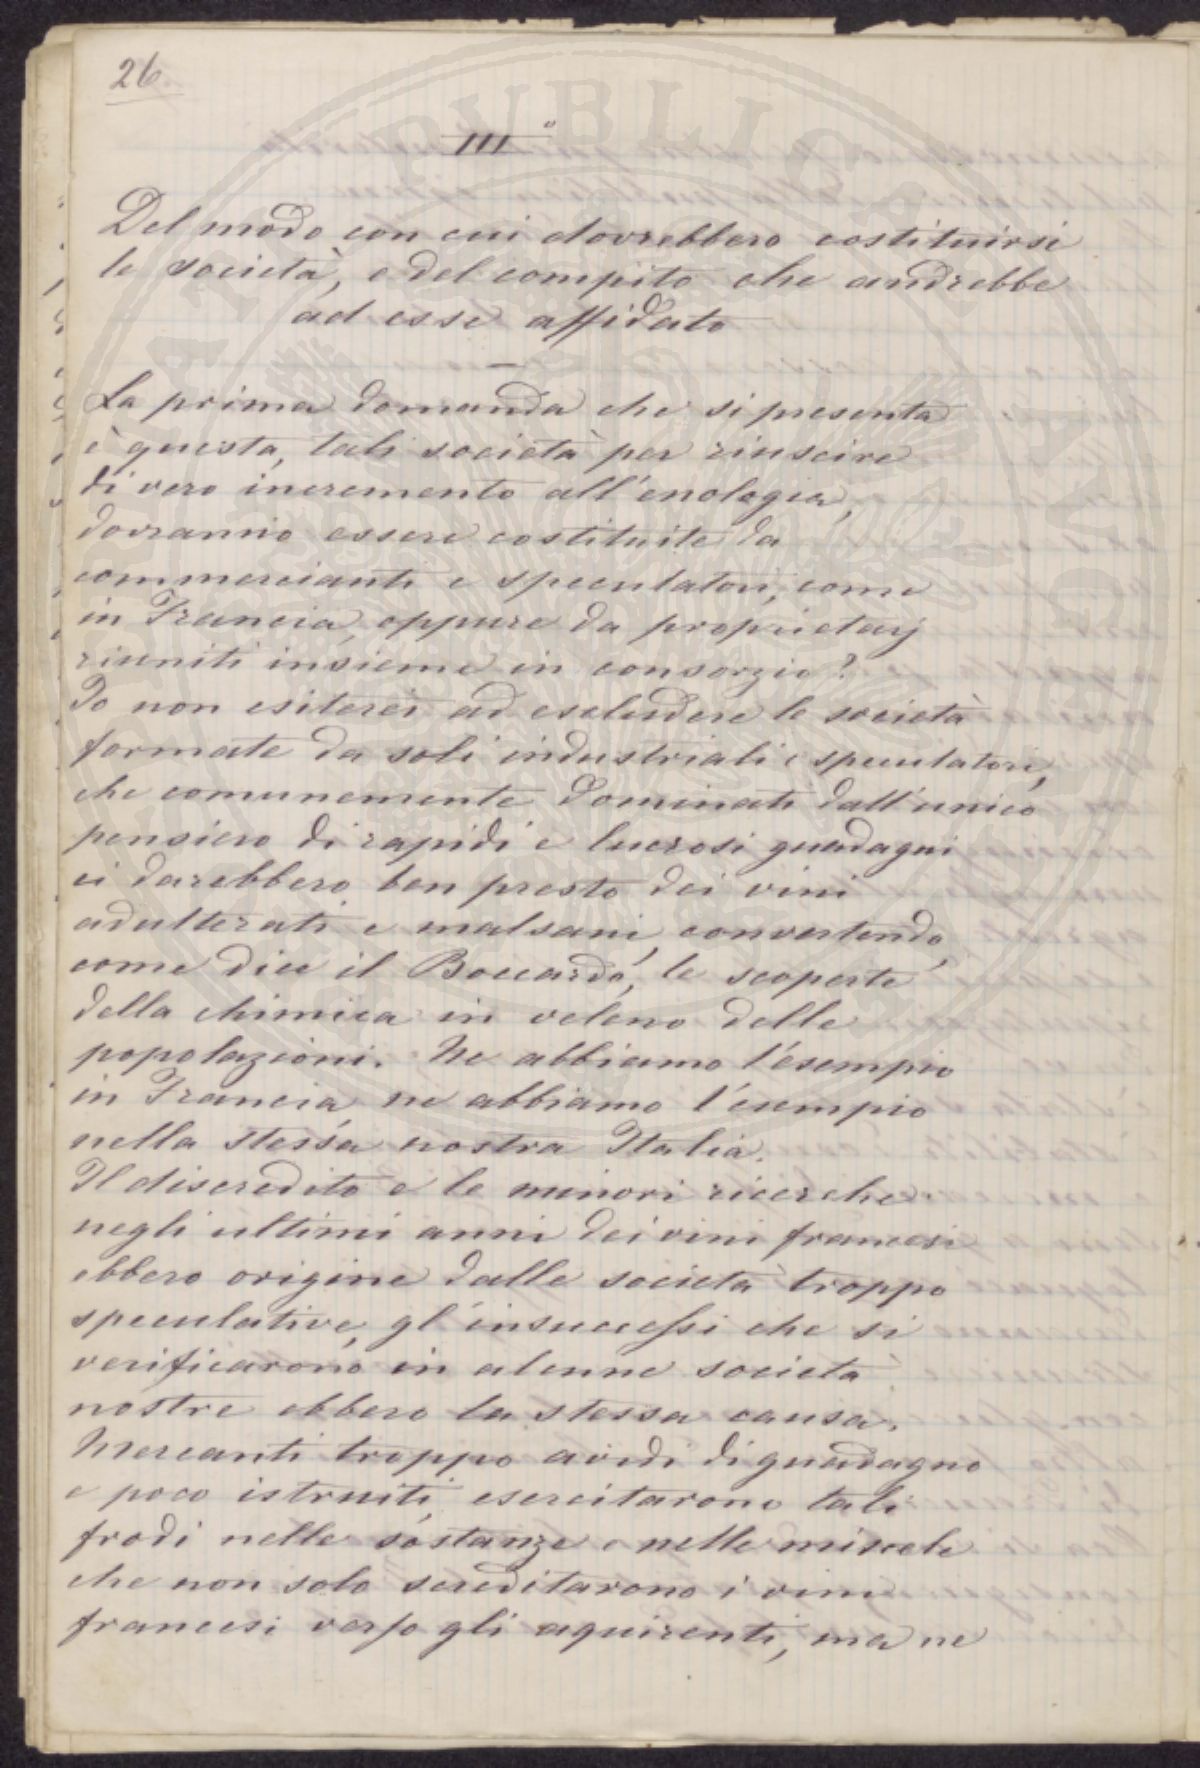 26
III°
Del modo con cui dovrebbero costituirsi
le società, e del compito che andrebbe
ad esse affidato
La prima domanda che si presenta
è questa, tali società per riuscire
di vero incremento all'enologia,
dovranno essere costituite da
commercianti e speculatori, come
in Francia, oppure da proprietarj
riuniti insieme in consorzio?
Io non esiterei ad escludere le società
formate da soli industriali e speculatori,
che comunemente dominati dall'unico
pensiero di rapidi e lucrosi guadagni
ci darebbero ben presto dei vini
adulterati e malsani, convertendo,
come dice il Boccardo, le scoperte
della chimica in veleno delle
popolazioni. Ne abbiamo l'esempio
in Francia ne abbiamo l'esempio
nella stessa nostra Italia.
Il discredito e le minori ricerche
negli ultimi anni dei vini francesi
ebbero origine dalle società troppo
speculative, gl'insuccessi che si
verificarono in alcune società
nostre ebbero la stessa causa.
Mercanti troppo avidi di guadagno
e poco istruiti esercitarono tali
frodi nelle sostanze e nelle miscele
che non solo screditarono i vini
francesi verso gli aquirenti, ma ne
PUBLICAE